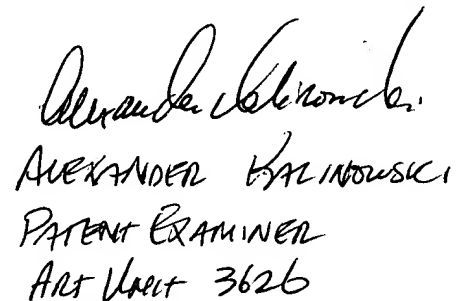 Alexander Kalinowski
ALEXANDER KALINOWSKI
PATENT EXAMINER
ART UNIT 3626